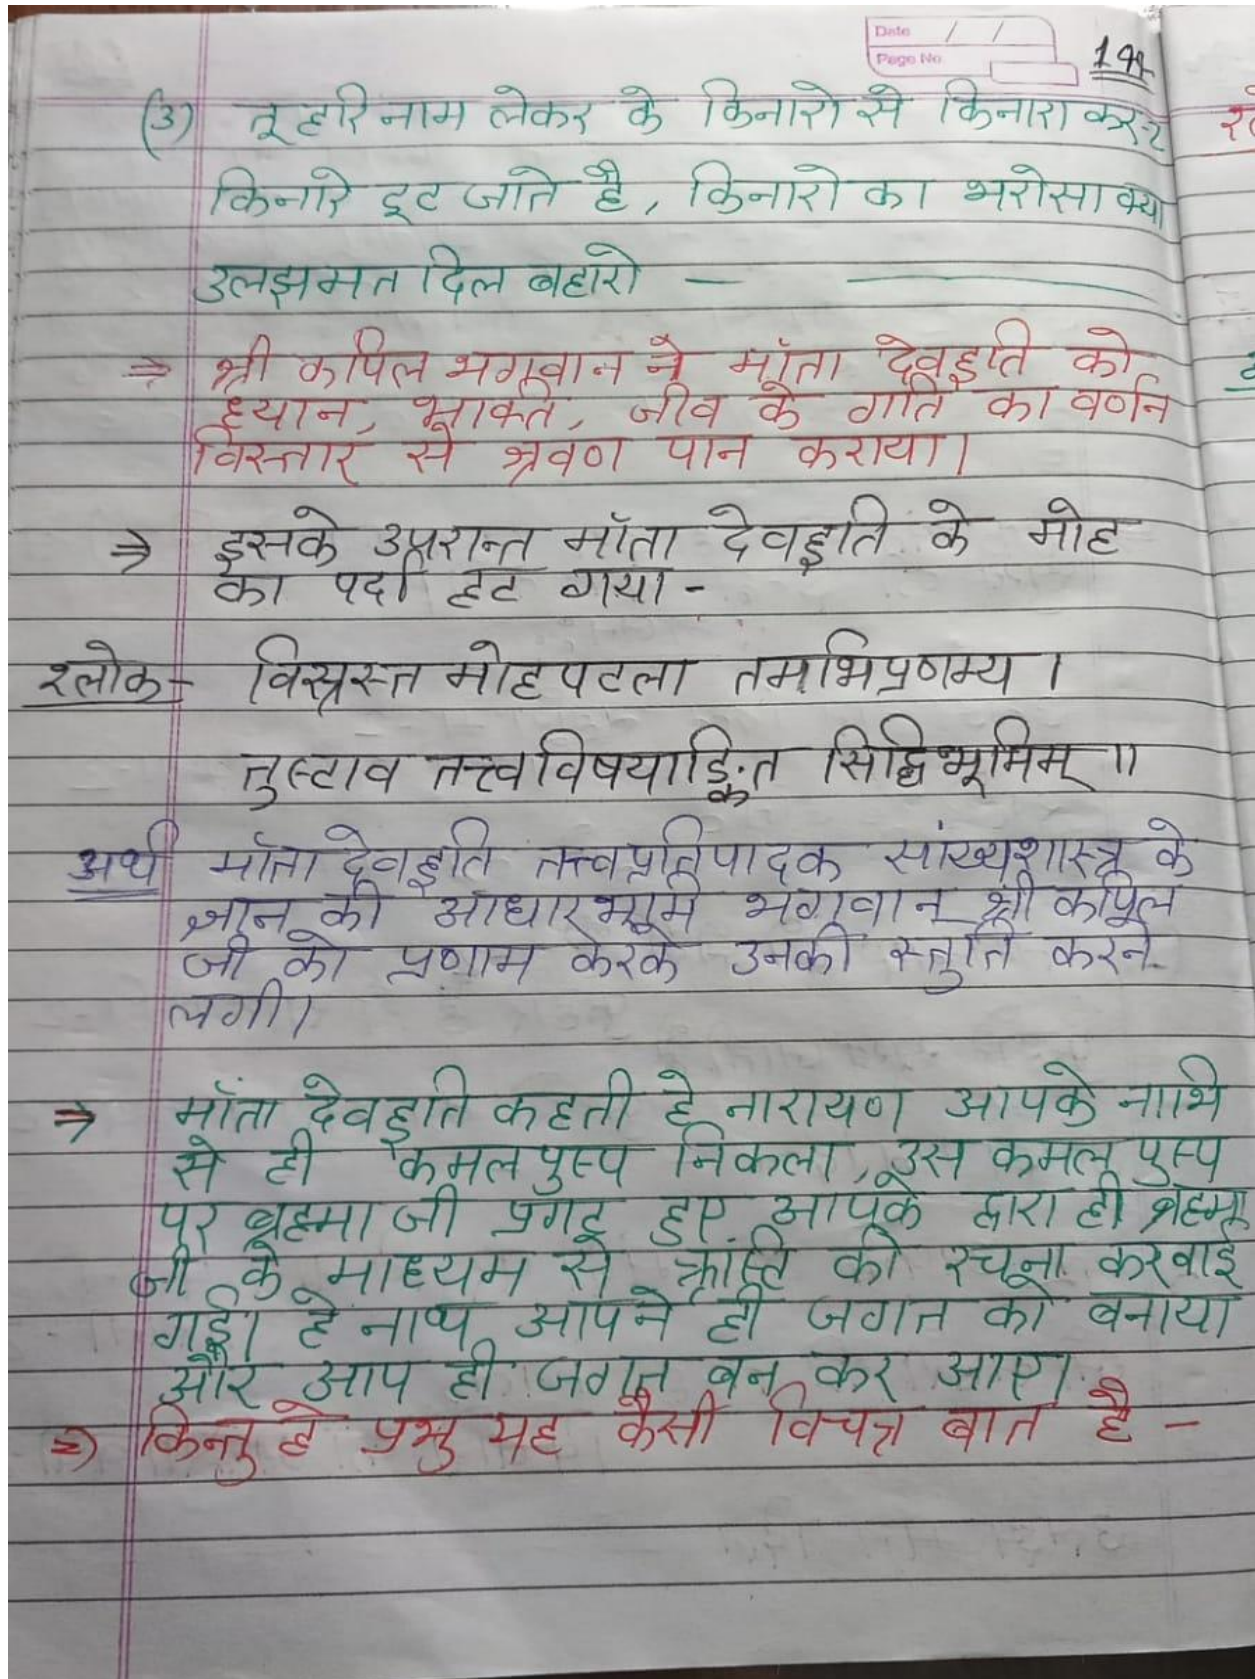 Date / /
Page No
(3) तू हरि नाम लेकर के किनारो से किनारा कर-२
किनारे टूट जाते है, किनारो का भरोसा क्या
उलझमत दिल बहारो —
⇒ श्री कपिल भगवान ने मॉता देवहुति को
ध्यान, भक्ति, जीव के गति का वर्णन
विस्तार से श्रवण पान कराया।
⇒ इसके उपरान्त मॉता देवहुति के मोह
का पर्दा हट गया -
श्लोक- विस्रस्त मोहपटला तमभिप्रणम्य ।
तुस्टाव तत्त्वविषयाङ्कित सिद्धिभूमिम् ॥
अर्थ मॉता देवहुति तत्त्वप्रतिपादक सांख्यशास्त्र के
ज्ञान की आधारभूमि भगवान श्री कपिल
जी को प्रणाम करके उनकी स्तुति करने
लगी।
⇒ मॉता देवहुति कहती हे नारायण आपके नाभि
से ही कमलपुस्प निकला, उस कमल पुस्प
पर ब्रह्मा जी प्रगट हुए आपके द्वारा ही ब्रह्मा
जी के माध्यम से की रचना करवाई
गई। हे नाथ आपने ही जगत को बनाया
और आप ही जगत बन कर आए।
⇒ किन्तु हे प्रभु यह कैसी विचत्र बात है -